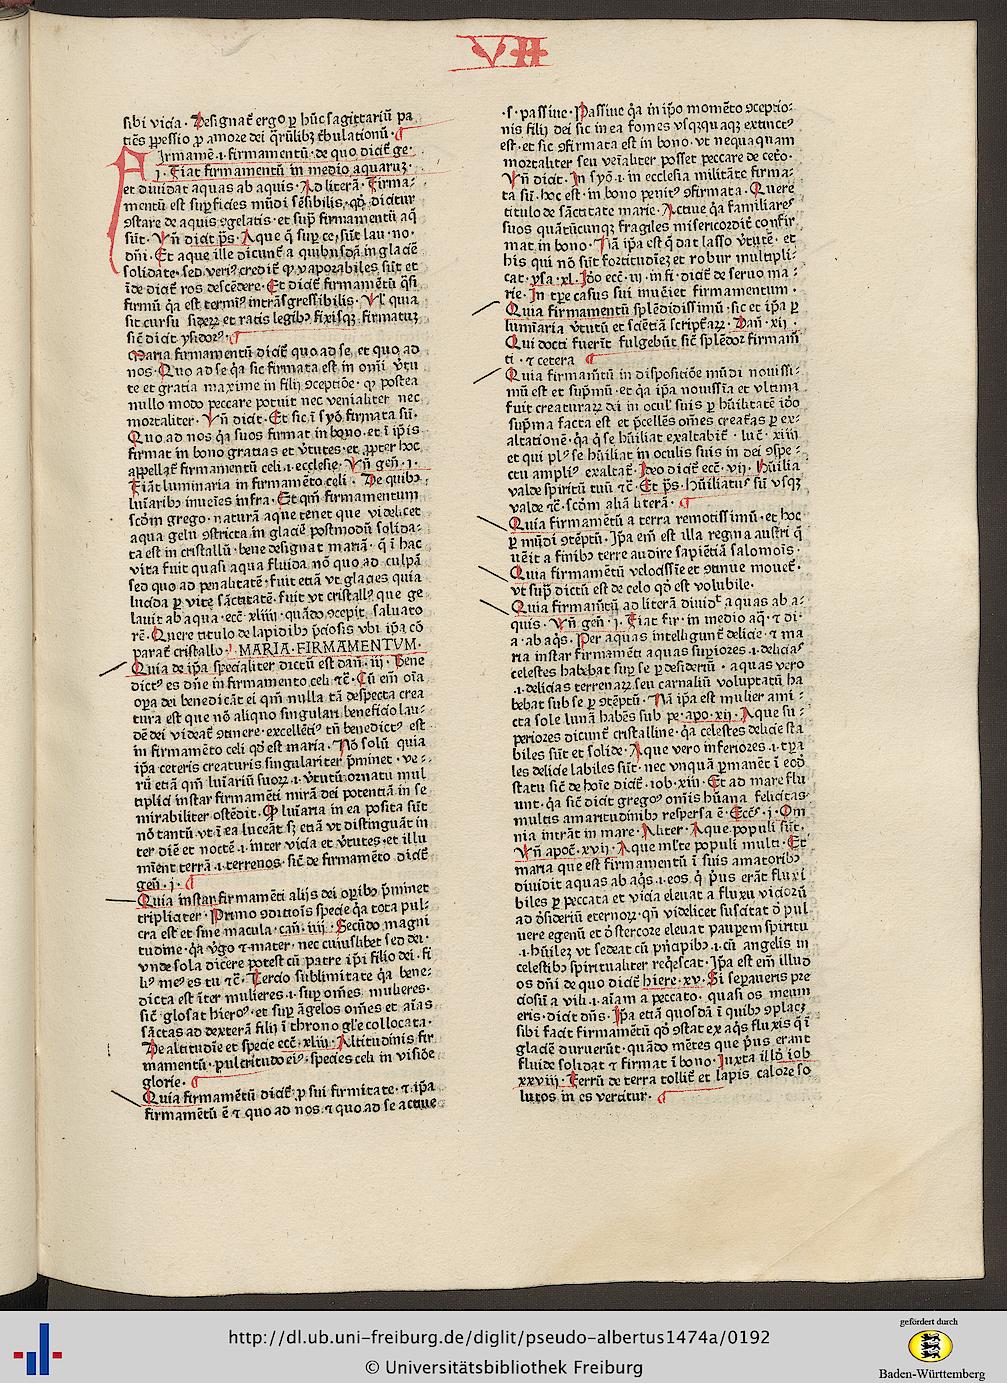 VII
sibi vicia · Designat̄ ergo ꝑ hūc sagittariū pa
tiēs ꝓpessio ꝓ amore dei q̄rūlibꝫ t̄bulationū ·
Firmamē · i · firmamentū · de quo dicit̄ ge ·
i · Fiat firmamentū in medio aquarꝝ
et diuidat aquas ab aquis · Ad literā · Firma⸗
mentū est suꝑficies mūdi sēsibilis · qđ dicitur
ꝯstare de aquis ꝯgelatis · et suꝑ firmamentū aq̄
sūt · Vn̄ dicit p̄s · Aque q̄ suꝑ ce, sūt lau · no ·
dn̄i · Et aque ille dicunt̄ a quibusdā in glaciē
solidate · sed veriꝰ credit̄ ꝙ vaporabiles sūt et
īde dicit̄ ros descēdere · Et dicit̄ firmamētū q̄si
firmū q̄a est termiꝰ intrāsgressibilis · Vl̄ quia
sit cursu siderꝝ et ratis legibꝰ fixisqꝫ firmatuꝫ
sic̄ dicit ysidorꝰ ·
Maria firmamentū dicit̄ quo ad se, et quo ad
nos · Quo ad se q̄a sic firmata est in om̄i v̄tu
te et gratia maxime in filij ꝯceptiōe · ꝙ postea
nullo modo peccare potuit nec venialiter nec
mortaliter · Vn̄ dicit · Et sic ī syō firmata sū ·
Quo ad nos q̄a suos firmat in bono · et ī ip̄is
firmat in bono gratias et v̄tutes · et ꝓpter hoc
appellat̄ firmamentū celi · i · ecclesie · Vn̄ gen̄ · i ·
Fiāt luminaria in firmamēto celi · De quibꝰ
lūaribꝰ inueīes infra · Et qm̄ firmamentum
scđm grego · naturā aque tenet que videlicet
aqua gelu ꝯstricta in glaciē postmodū solida⸗
ta est in cristallū · bene designat mariā · q̄ ī hac
vita fuit quasi aqua fluida nō quo ad culpā
sed quo ad penalitatē · fuit etiā vt glacies quia
lucida ꝑ vite sāctitatē · fuit vt cristallꝰ que ge
lauit ab aqua · ecc̄ xliiij · quādo ꝯcepit saluato
rē · Quere titulo de lapidibꝰ p̄ciosis vbi ip̄a cō
parat̄ cristallo · MARIA · FIRMAMENTVM ·
Quia de ip̄a specialiter dictū est dan̄ · iij · Bene
dictꝰ es dn̄e in firmamento celi ⁊c̄ · Cū em̄ oīa
oꝑa dei benedicāt ei qm̄ nulla tā despecta crea
tura est que nō aliquo singulari beneficio lau⸗
dē dei videat̄ ꝯtinere · excellētiꝰ tn̄ benedictꝰ est
in firmamēto celi qđ est maria · Nō solū quia
ip̄a ceteris creaturis singulariter p̄minet · ve⸗
rū etiā qm̄ lūiariū suoꝝ · i · v̄tutū ornatu mul
tiplici instar firmamēti mirā dei potentiā in se
mirabiliter ostēdit · Qꝫ lūiaria in ea posita sūt
nō tantū vt ī ea luceāt sꝫ etiā vt distinguāt in
ter diē et noctē · i · inter vicia et v̄tutes · et illu
mīent terrā · i · terrenos · sic̄ de firmamēto dicit̄
gen̄ · i ·
Quia instar firmamēti alijs dei oꝑibꝰ p̄minet
tripliciter · Primo ꝯditiōis specie q̄a tota pul⸗
cra est et sine macula · can̄ · iiij · Secūdo magni
tudine · q̄a v̄go ⁊ mater · nec cuiuslibet sed dei ·
vnde sola dicere potest cū patre ip̄i filio dei · fi
liꝰ meꝰ es tu ⁊c̄ · Tercio sublimitate q̄a bene⸗
dicta est īter mulieres · i · suꝑ om̄es mulieres ·
sic̄ glosat hieroꝰ · et suꝑ āgelos om̄es et aīas
sāctas ad dexterā filij ī throno gl'e collocata ·
De altitudīe et specie ecc̄ · xliij · Altitudinis fir
mamentū · pulcritudo eiꝰ · species celi in visiōe
glorie ·
Quia firmamētū dicit̄ ꝓ sui firmitate · ⁊ ip̄a
firmamētū ē ⁊ quo ad nos ⁊ quo ad se actiue
· s · passiue · Passiue q̄a in ip̄o momēto ꝯceptio⸗
nis filij dei sic in ea fomes vsqꝫquaqꝫ extinctꝰ
est · et sic ꝯfirmata est in bono · vt nequaquam
mortaliter seu veīaliter posset peccare de cet̄o ·
Vn̄ dicit · In syō · i · in ecclesia militāte firma⸗
ta sū · hoc est · in bono penitꝰ ꝯfirmata · Quere
titulo de sāctitate marie · Actiue q̄a familiares
suos quātūcunqꝫ fragiles misericordit̄ confir
mat in bono · Nā ip̄a est q̄ dat lasso v̄tutē · et
his qui nō sūt fortitudīeꝫ et robur multipli⸗
cat · ysa · xl · Iđo ecc̄ · iij · in fi · dicit̄ de seruo ma⸗
rie · In tꝑe casus sui inueīet firmamentum ·
Quia firmamentū splēdidissimū · sic et ip̄a ꝑ
lumīaria v̄tutū et sciētiā scripturarꝝ · Dan̄ · xij ·
Qui docti fuerīt fulgebūt sic̄ splēdor firmam̄
ti · ⁊ cetera
Quia firmam̄tū in dispositiōe mūdi nouissi⸗
mū est et supmū · et q̄a ip̄a nouissīa et vltima
fuit creaturarꝝ dei in oculꝭ suis ꝑ hūilitatē iđo
sup̄ma facta est et p̄cellēs om̄es creatās ꝑ ex⸗
altationē · q̄a q̄ se hūiliat exaltabit̄ · luc̄ · xiiij
et qui plꝰ se hūiliat in oculis suis in dei ꝯspe⸗
ctu ampliꝰ exaltat̄ · Ideo dicit̄ ecc̄ · vij · Hūilia
valde spiritū tuū ⁊c̄ · Et p̄s · Hūiliatus sū vsqꝫ
valde ⁊c̄ · scđm aliā literā ·
Quia firmamētū a terra remotissimū · et hoc
ꝑ mūdi ꝯtēptū · Ip̄a em̄ est illa regina austri q̄
uēit a finibꝰ terre audire sapiētiā salomōis ·
Quia firmamētū velocissīe et ꝯtinue mouet̄ ·
vt sup̄ dictū est de celo qđ est volubile ·
Quia firmam̄tū ad literā diuidit aquas ab a⸗
quis · Vn̄ gen̄ · i · Fiat fir · in medio aq̄ · ⁊ di ·
a · ab aqs̄ · Per aquas intelligunt̄ delicie · ⁊ ma
ria instar firmamēti aquas suꝑiores · i · delicias
celestes habebat suꝑ se ꝑ desideriū · aquas vero
· i · delicias terrenarꝝ seu carnaliū voluptatū ha
bebat sub se ꝑ ꝯtēptū · Nā ip̄a est mulier ami⸗
cta sole lunā habēs sub pe · apo · xij · Aque su⸗
periores dicunt̄ cristalline · q̄a celestes delicie sta
biles sūt et solide · Aque vero inferiores · i · tr̄a
les delicie labiles sūt · nec vnquā ꝑmanēt ī eođ
statu sic̄ de hoīe dicit̄ · iob · xiiij · Et ad mare flu
unt · q̄a sic̄ dicit gregoꝰ om̄is hūana felicitas
multis amaritudinibꝰ respersa ē · Ecc̄s · i · Om
nia intrāt in mare · Aliter · Aque populi sūt ·
Vn̄ apoc̄ · xvij · Aque ml'te populi multi · Et
maria que est firmamentū ī suis amatoribꝰ
diuidit aquas ab aqs̄ · i · eos q̄ pꝰ erāt fluxi
biles ꝑ peccata et vicia eleuat a fluxu vicioꝝ
ad ꝯsideriū eternoꝝ · qn̄ videlicet suscitat đ pul
uere egenū et đ stercore eleuat pauperem spiritu
· i · hūileꝫ vt sedeat cū p̄ncipibꝰ · i · cū angelis in
celestibꝰ spiritualiter reqēscat · Ip̄a est em̄ illud
os dn̄i de quo dicit̄ hiere · xv · Si separaueris pre
ciosū a vili · i · aīam a peccato · quasi os meum
eris · dicit dn̄s · Ip̄a etiā quosdā ī quibꝰ ꝯplacꝫ
sibi facit firmamētū qđ ꝯstat ex aqs̄ fluxis q̄ ī
glaciē duruerūt · quādo mētes que pꝰ erant
fluide solidat ⁊ firmat ī bono · Iuxta illđ iob
xxviij · Ferrū de terra tollit̄ et lapis calore so
lutos in es vertitur ·
http://dl.ub.uni-freiburg.de/diglit/pseudo-albertus1474a/0192
© Universitätsbibliothek Freiburg
gefördert durch
Baden-Württemberg